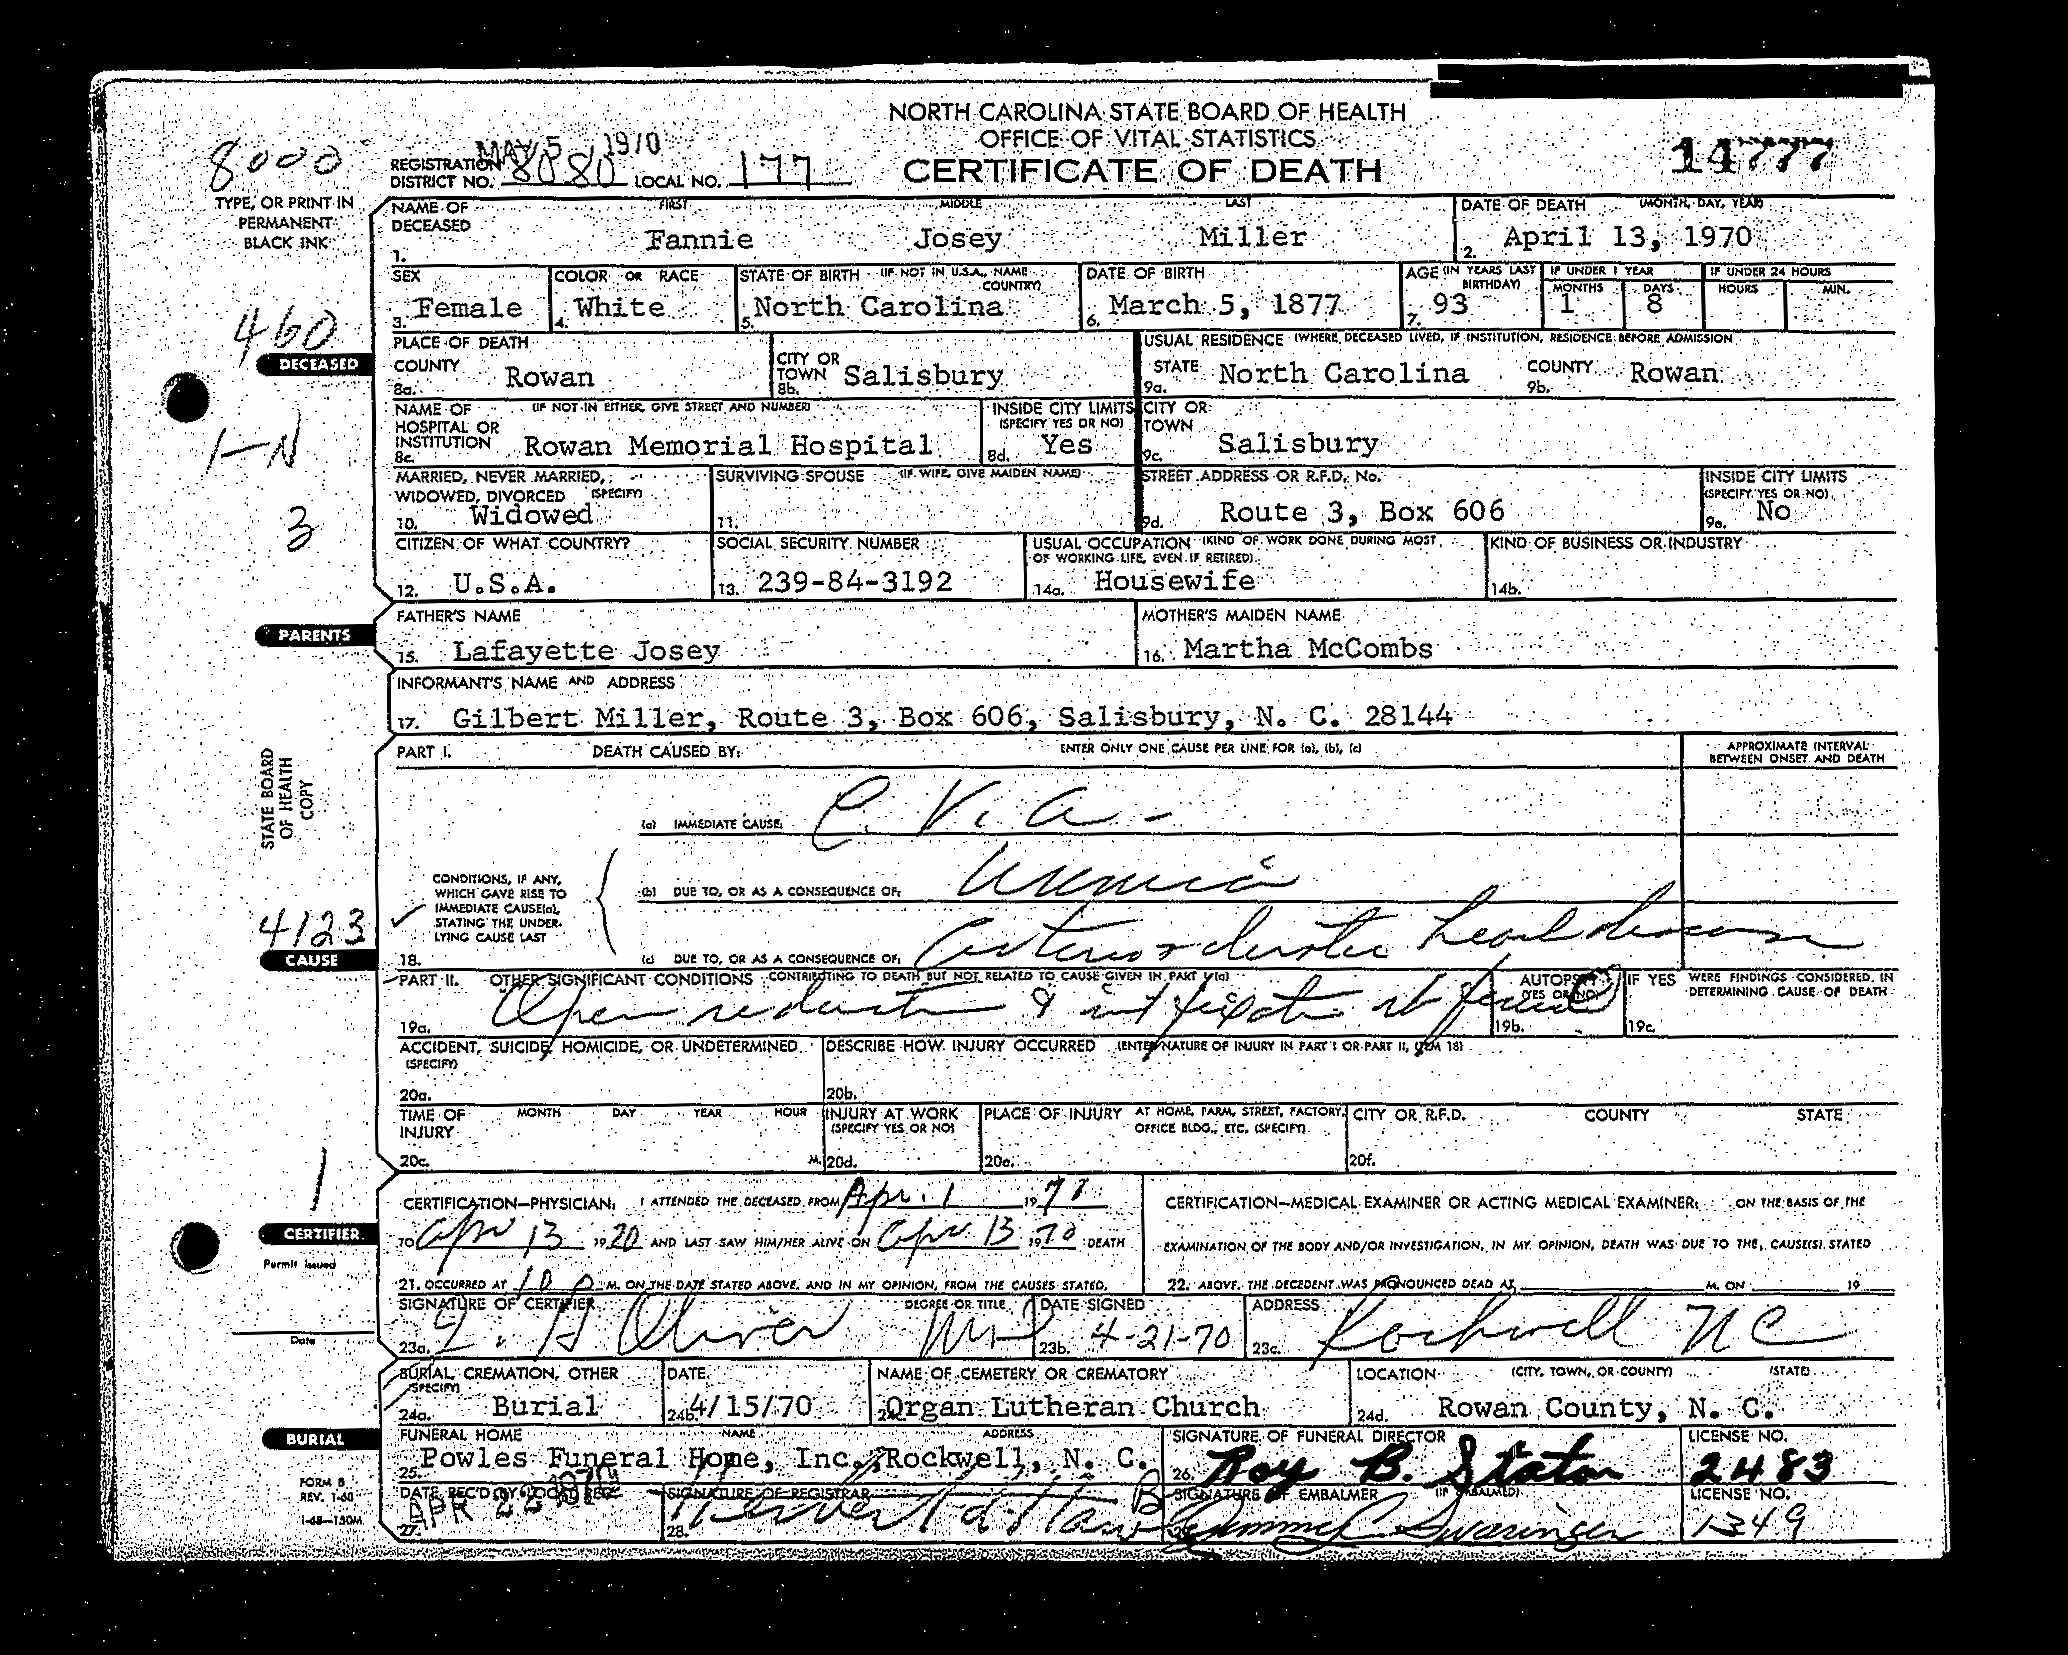 NORTH CAROLINA STATE BOARD OF HEALTH
OFFICE OF VITAL STATISTICS
CERTIFICATE OF DEATH
14777
8000
MAY 5 1970
REGISTRATION DISTRICT NO. 8080 LOCAL NO. 177
TYPE, OR PRINT IN
PERMANENT
BLACK INK
NAME OF DECEASED FIRST MIDDLE LAST DATE OF DEATH (MONTH, DAY, YEAR)
1. Fannie Josey Miller 2. April 13, 1970
SEX COLOR OR RACE STATE OF BIRTH (IF NOT IN U.S.A., NAME COUNTRY) DATE OF BIRTH AGE (IN YEARS LAST BIRTHDAY) IF UNDER 1 YEAR MONTHS DAYS IF UNDER 24 HOURS HOURS MIN.
3. Female 4. White 5. North Carolina 6. March 5, 1877 7. 93 1 8
460
DECEASED
PLACE OF DEATH USUAL RESIDENCE (WHERE DECEASED LIVED, IF INSTITUTION, RESIDENCE BEFORE ADMISSION
COUNTY 8a. Rowan CITY OR TOWN 8b. Salisbury STATE 9a. North Carolina COUNTY 9b. Rowan
NAME OF HOSPITAL OR INSTITUTION (IF NOT IN EITHER, GIVE STREET AND NUMBER) INSIDE CITY LIMITS (SPECIFY YES OR NO) CITY OR TOWN
8c. Rowan Memorial Hospital 8d. Yes 9c. Salisbury
1-N
3
MARRIED, NEVER MARRIED, WIDOWED, DIVORCED (SPECIFY) SURVIVING SPOUSE (IF WIFE, GIVE MAIDEN NAME) STREET ADDRESS OR R.F.D. No. INSIDE CITY LIMITS (SPECIFY YES OR NO)
10. Widowed 11. 9d. Route 3, Box 606 9e. No
CITIZEN OF WHAT COUNTRY? SOCIAL SECURITY NUMBER USUAL OCCUPATION (KIND OF WORK DONE DURING MOST OF WORKING LIFE, EVEN IF RETIRED) KIND OF BUSINESS OR INDUSTRY
12. U.S.A. 13. 239-84-3192 14a. Housewife 14b.
PARENTS
FATHER'S NAME MOTHER'S MAIDEN NAME
15. Lafayette Josey 16. Martha McCombs
INFORMANT'S NAME AND ADDRESS
17. Gilbert Miller, Route 3, Box 606, Salisbury, N. C. 28144
STATE BOARD
OF HEALTH
COPY
PART I. DEATH CAUSED BY: ENTER ONLY ONE CAUSE PER LINE FOR (a), (b), (c) APPROXIMATE INTERVAL BETWEEN ONSET AND DEATH
(a) IMMEDIATE CAUSE: C. V. A. -
CONDITIONS, IF ANY,
WHICH GAVE RISE TO
IMMEDIATE CAUSE(a),
STATING THE UNDER-
LYING CAUSE LAST
(b) DUE TO, OR AS A CONSEQUENCE OF: Uremia
4123
CAUSE
18. (c) DUE TO, OR AS A CONSEQUENCE OF: heart disease
PART II. OTHER SIGNIFICANT CONDITIONS CONTRIBUTING TO DEATH BUT NOT RELATED TO CAUSE GIVEN IN PART I (a) AUTOPSY YES OR NO IF YES WERE FINDINGS CONSIDERED IN DETERMINING CAUSE OF DEATH
19a. Open reduction & int fixation 19b. 19c.
ACCIDENT, SUICIDE, HOMICIDE, OR UNDETERMINED (SPECIFY) DESCRIBE HOW INJURY OCCURRED (ENTER NATURE OF INJURY IN PART I OR PART II, ITEM 18)
20a. 20b.
TIME OF INJURY MONTH DAY YEAR HOUR INJURY AT WORK (SPECIFY YES OR NO) PLACE OF INJURY AT HOME, FARM, STREET, FACTORY, OFFICE BLDG., ETC. (SPECIFY) CITY OR R.F.D. COUNTY STATE
20c. M. 20d. 20e. 20f.
1
CERTIFIER
Permit issued
Date
CERTIFICATION—PHYSICIAN: I ATTENDED THE DECEASED FROM Apr. 1 19
TO Apr 13 19 AND LAST SAW HIM/HER ALIVE ON Apr 13 1970 DEATH
21. OCCURRED AT 10 M. ON THE DATE STATED ABOVE, AND IN MY OPINION, FROM THE CAUSES STATED.
CERTIFICATION—MEDICAL EXAMINER OR ACTING MEDICAL EXAMINER: ON THE BASIS OF THE
EXAMINATION OF THE BODY AND/OR INVESTIGATION, IN MY OPINION, DEATH WAS DUE TO THE CAUSE(S) STATED
22. ABOVE. THE DECEDENT WAS PRONOUNCED DEAD AT M. ON 19
SIGNATURE OF CERTIFIER DEGREE OR TITLE DATE SIGNED ADDRESS
23a. Oliver MD 23b. 4-21-70 23c. Rockwell NC
BURIAL, CREMATION, OTHER (SPECIFY) DATE NAME OF CEMETERY OR CREMATORY LOCATION (CITY, TOWN, OR COUNTY) (STATE)
24a. Burial 24b. 4/15/70 24c. Organ Lutheran Church 24d. Rowan County, N. C.
BURIAL
FUNERAL HOME NAME ADDRESS SIGNATURE OF FUNERAL DIRECTOR LICENSE NO.
25. Powles Funeral Home, Inc., Rockwell, N. C. 26. Roy B. Staton 2483
FORM 8
REV. 1-60
1-68—150M
DATE REC'D BY LOCAL REG. SIGNATURE OF REGISTRAR SIGNATURE OF EMBALMER (IF EMBALMED) LICENSE NO.
27. APR 22 1970 28. Swaringen 1349